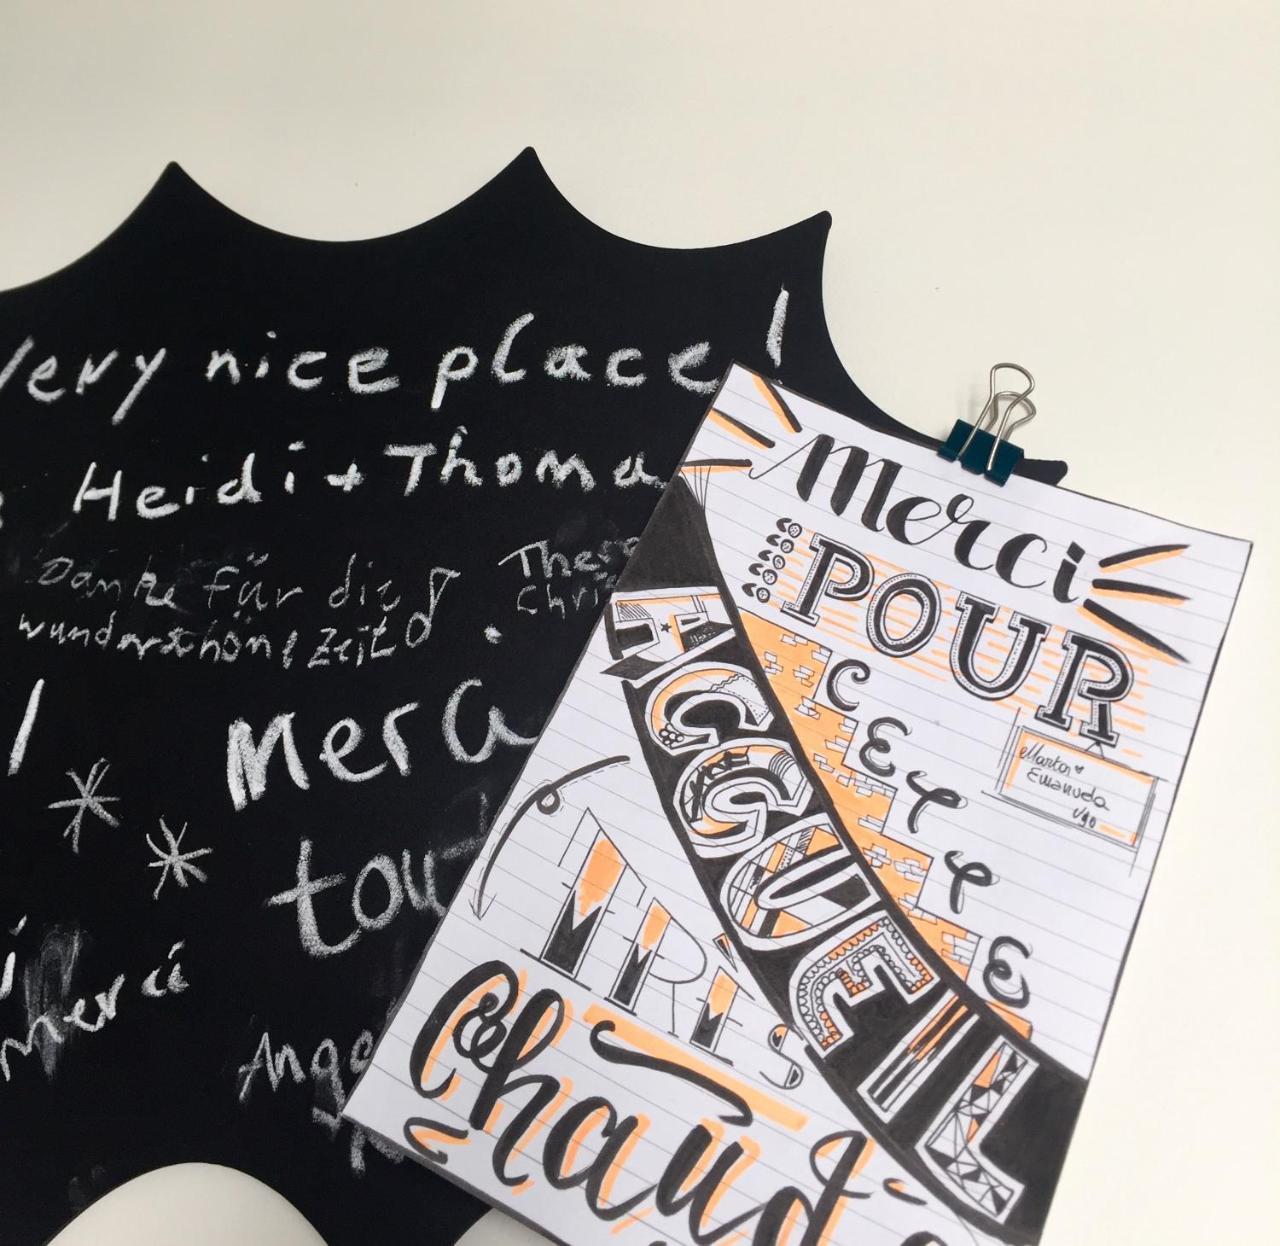 Very nice place!
Heidi + Thoma
Danke für die
wunderschöne Zeit
There
Chri
Merci
tou
merci
Ange
Merci
POUR
CETTE
ACCUEIL
Marta
Emanuela
Ugo
TRÈS
Chaud